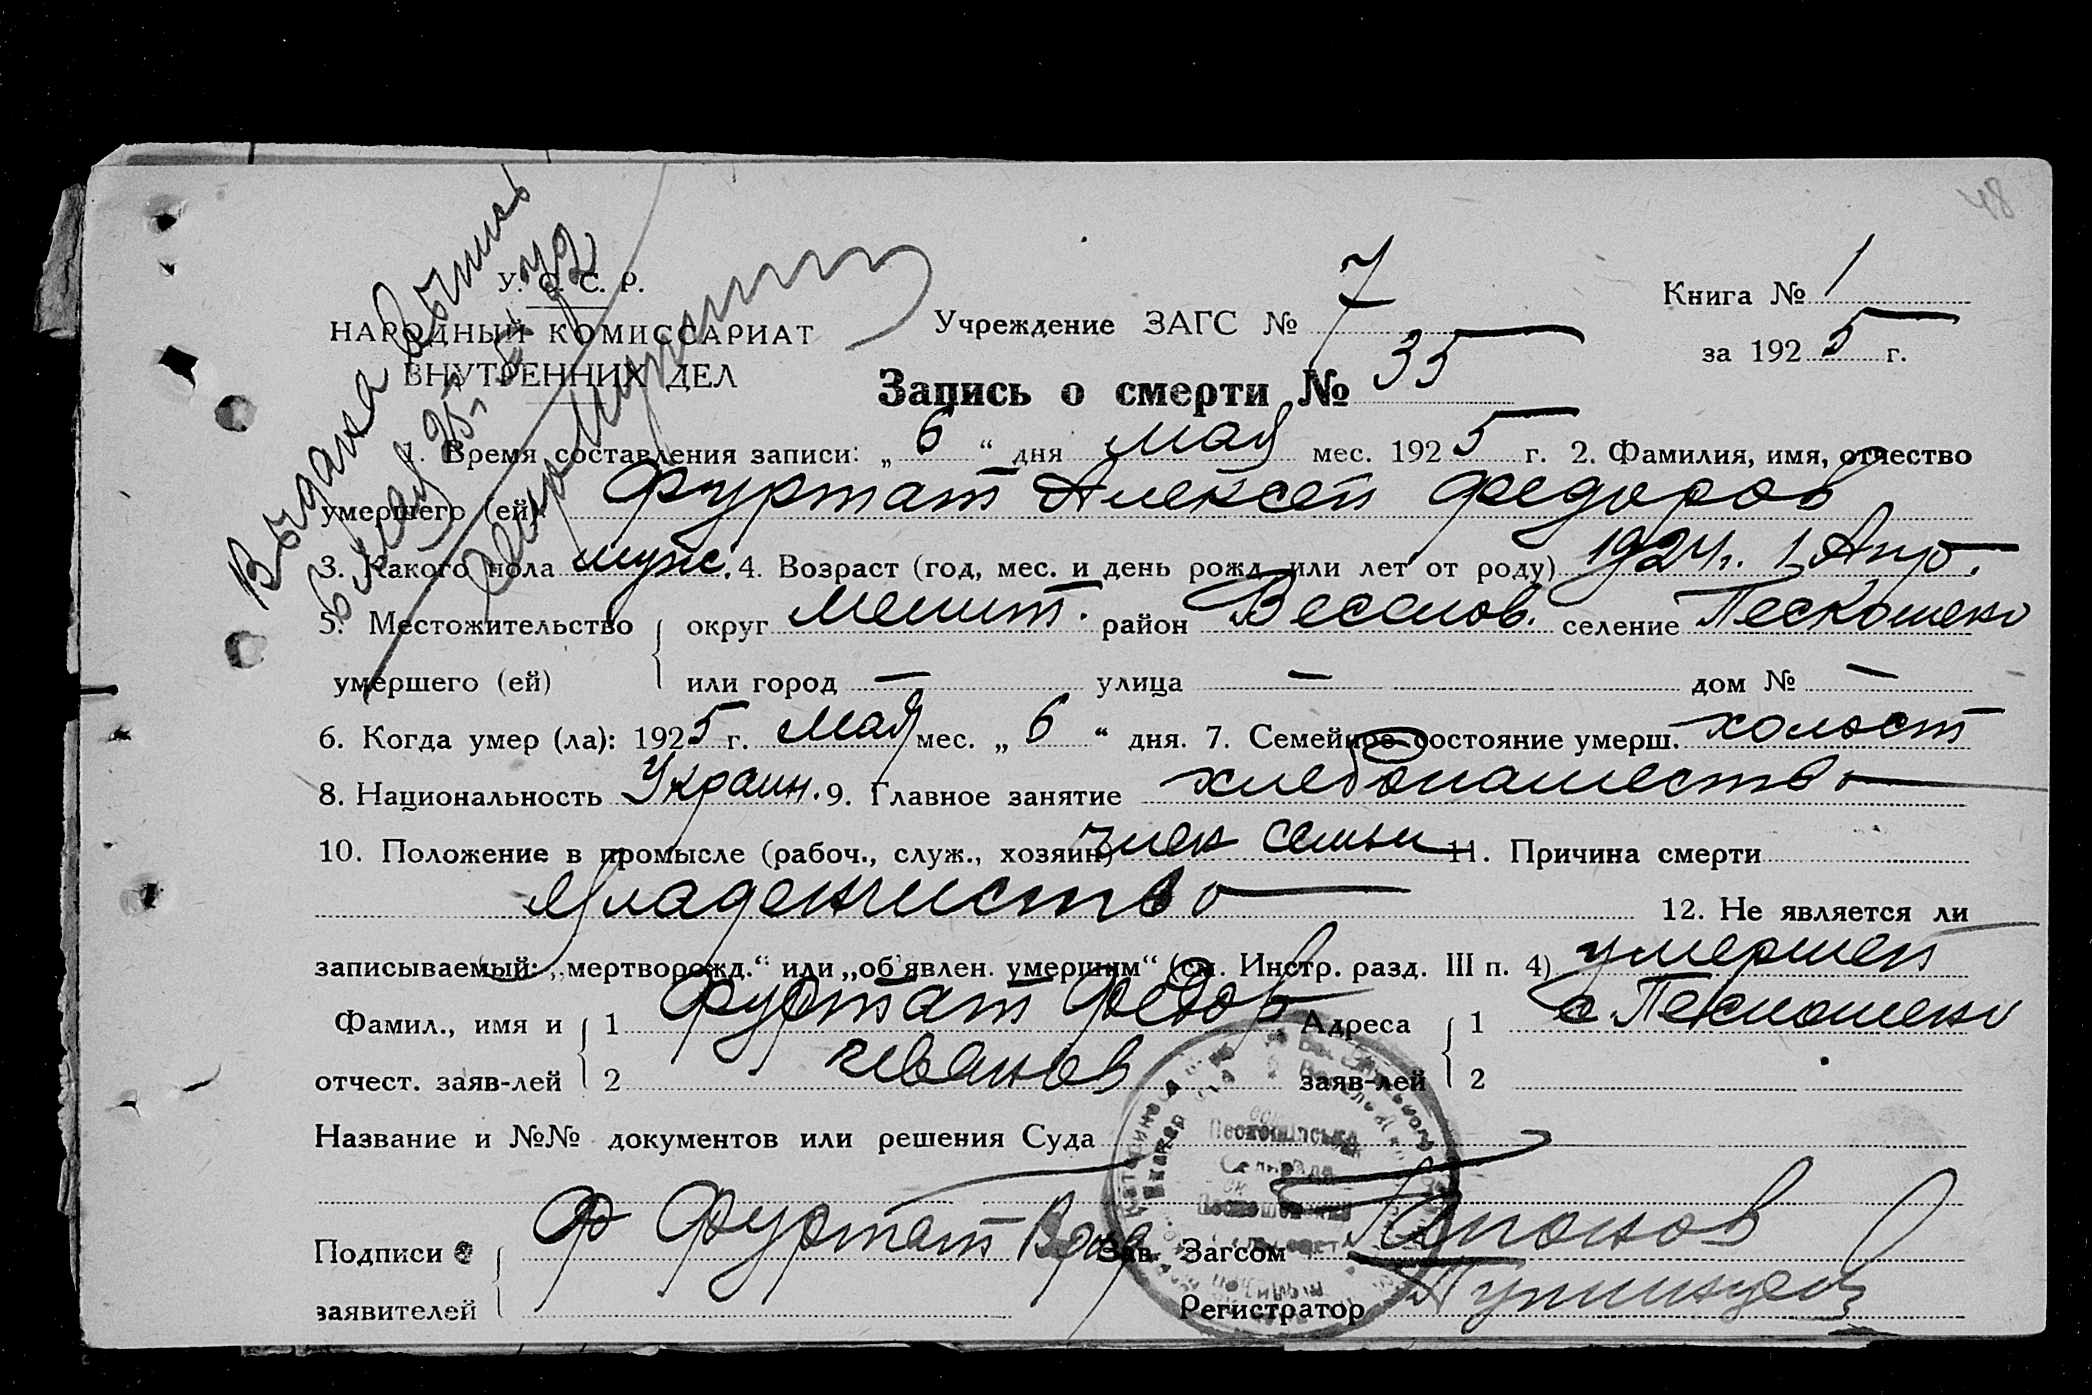 Выдана выпись
6 мая 25 г. № 42
У. С. С. Р.
НАРОДНЫЙ КОМИССАРИАТ
ВНУТРЕННИХ ДЕЛ
Учреждение ЗАГС № 7
Книга № 1
за 1925 г.
Запись о смерти № 35
1. Время составления записи: „6“ дня мая мес. 1925 г. 2. Фамилия, имя, отчество
умершего (ей) Фуртат Алексей Федоров
3. Какого пола мужс. 4. Возраст (год, мес. и день рожд. или лет от роду) 1924 г. 1 Апр.
5. Местожительство округ Мелит. район Веселов. селение Пескошено
умершего (ей) или город — улица — дом № —
6. Когда умер (ла): 1925 г. мая мес. „6“ дня. 7. Семейное состояние умерш. холост
8. Национальность Украин. 9. Главное занятие хлебопашество
10. Положение в промысле (рабоч., служ., хозяин) член семьи 11. Причина смерти
младенчиство 12. Не является ли
записываемый: „мертворожд.“ или „об'явлен. умершим“ (см. Инстр. разд. III п. 4) умершей
Фамил., имя и 1 Фуртат Федор Адреса 1 с. Пескошено
отчест. заяв-лей 2 Иванов заяв-лей 2
Название и №№ документов или решения Суда
Подписи Ф Фуртат Зав. Загсом
заявителей Регистратор